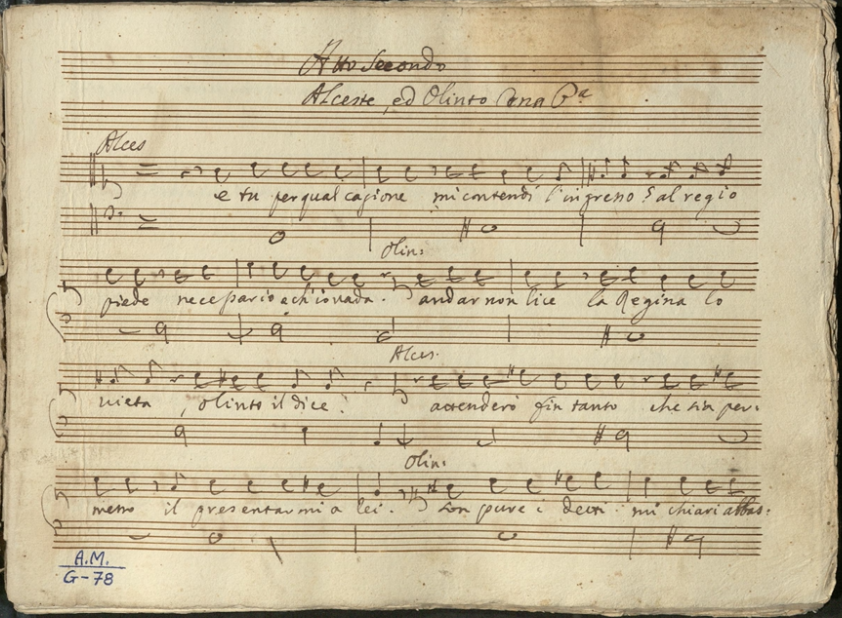 Atto Secondo
Alceste, ed Olinto Scena P.a
Alces
e tu per qual cagione mi contendi l'ingresso? al regio
Olin:
piede necessario è ch'io vada. andar non lice la Regina lo
Alces.
vieta, Olinto il dice? attenderò fin tanto che sia per:
Olin:
messo il presentarmi a lei. son pure i detti. mi chiari abbas:
A.M.
G-78